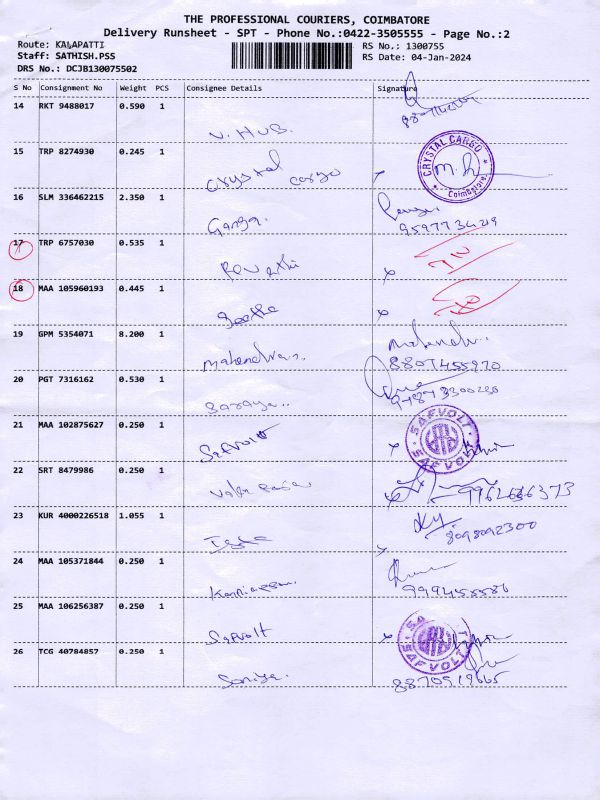 THE PROFESSIONAL COURIERS, COIMBATORE
Delivery Runsheet - SPT - Phone No.:0422-3505555 - Page No.:2
Route: KALAPATTI RS No.: 1300755
Staff: SATHISH.PSS RS Date: 04-Jan-2024
DRS No.: DCJB130075502
S No Consignment No Weight PCS Consignee Details Signature
14 RKT 9488017 0.590 1
V. HUB.
15 TRP 8274930 0.245 1
Crystal Cargo
CRYSTAL CARGO
Coimbatore
16 SLM 336462215 2.350 1
Ganga.
9597734219
17 TRP 6757030 0.535 1
Revathi
18 MAA 105960193 0.445 1
Geetha
19 GPM 5354071 8.200 1
8807455920
20 PGT 7316162 0.530 1
Saranya..
21 MAA 102875627 0.250 1
Safvolt
SAFVOLT
SAFVOLT
22 SRT 8479986 0.250 1
23 KUR 4000226518 1.055 1
8098092300
24 MAA 105371844 0.250 1
25 MAA 106256387 0.250 1
Safvolt
SAFVOLT
SAFVOLT
26 TCG 40784857 0.250 1
Soniya.
8870519665